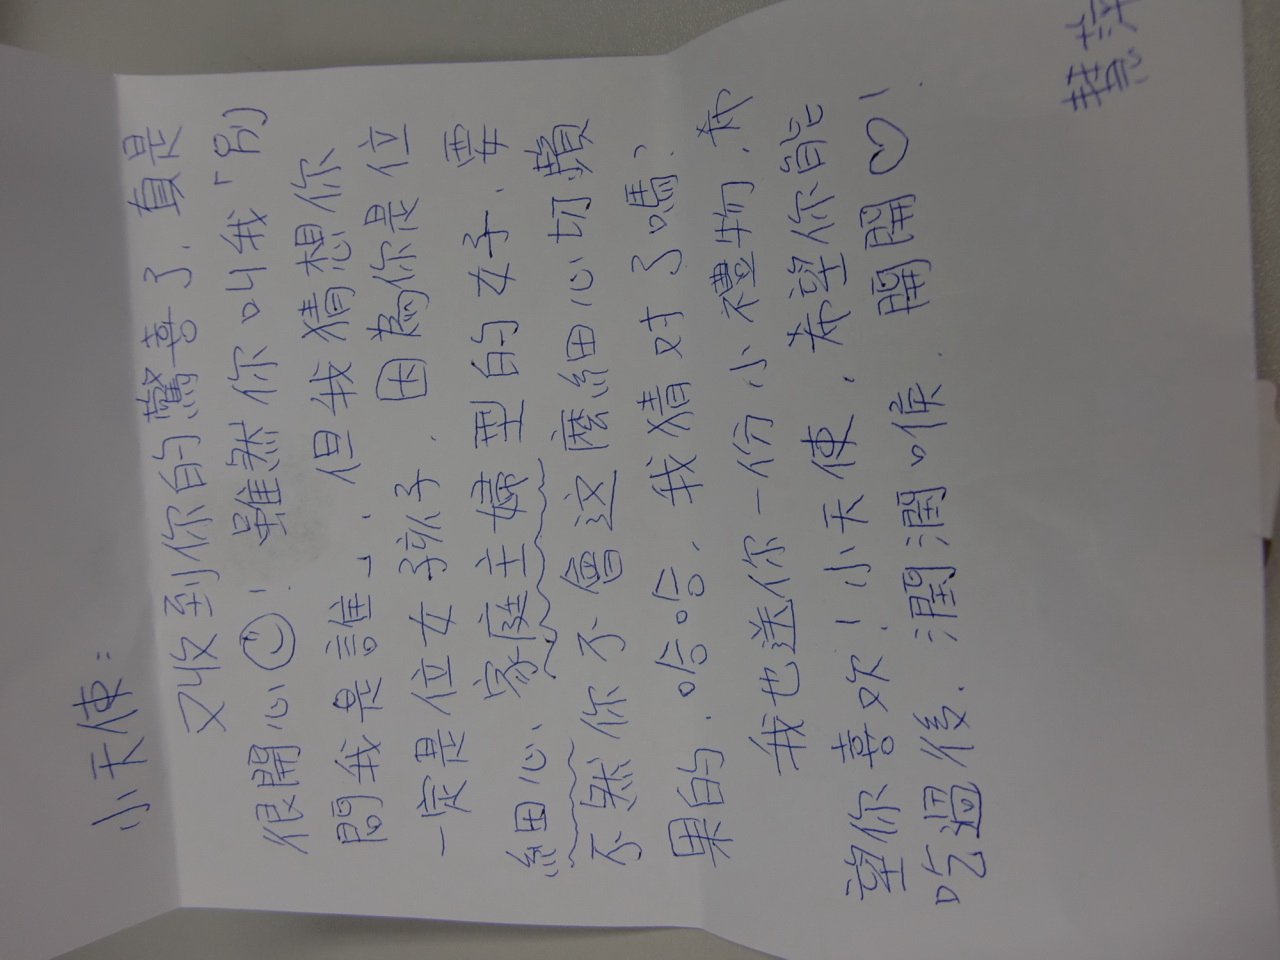 小天使：
又收到你的驚喜了，真是
很開心☺！雖然你叫我「別
問我是誰」，但我猜想你
一定是位女孩子，因為你是位
細心、家庭主婦型的女子，要
不然你不會这麼細心切蘋
果的，哈哈，我猜对了嗎，
我也送你一份小禮物，希
望你喜欢！小天使，希望你能
吃過後，潤潤喉，開開♡！
慧萍